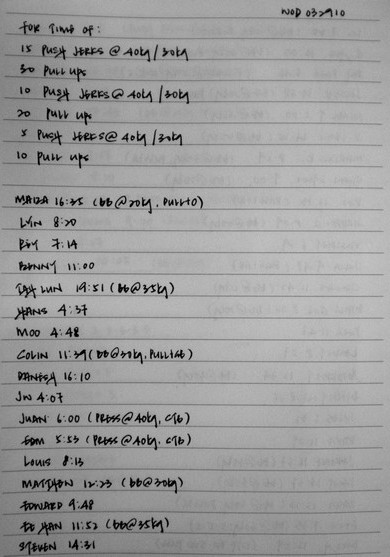 WOD 032910
FOR TIME OF:
15 PUSH JERKS @ 40kg/30kg
30 PULL UPS
10 PUSH JERKS @ 40kg/30kg
20 PULL UPS
5 PUSH JERKS @ 40kg/30kg
10 PULL UPS
MAIZA 16:35 (BB@20kg,
LYN 8:20
7:14
BENNY 11:00
LUN 19:51 (BB@35kg)
HANS 4:37
MOO 4:48
COLIN 11:39 (BB@30kg,
DANESH 16:10
JW 4:07
JUAN 6:00 (PRESS@40kg, CTB)
5:53 (PRESS@40kg, CTB)
LOUIS 8:13
MATTHEW 12:23 (BB@30kg)
EDWARD 9:48
HAN 11:52 (BB@35kg)
STEVEN 14:31